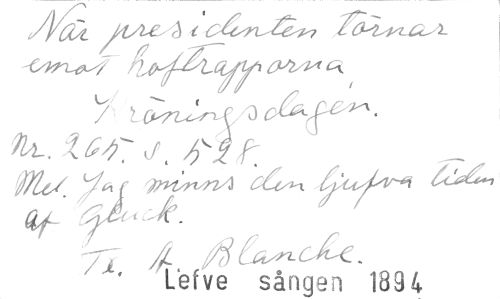 När presidenten törnar
emot hoftrapporna
Kröningsdagen.
Nr. 265. s. 528.
Mel. Jag minns den ljufva tiden
af Gluck.
Te. A Blanche.
Lefve sången 1894